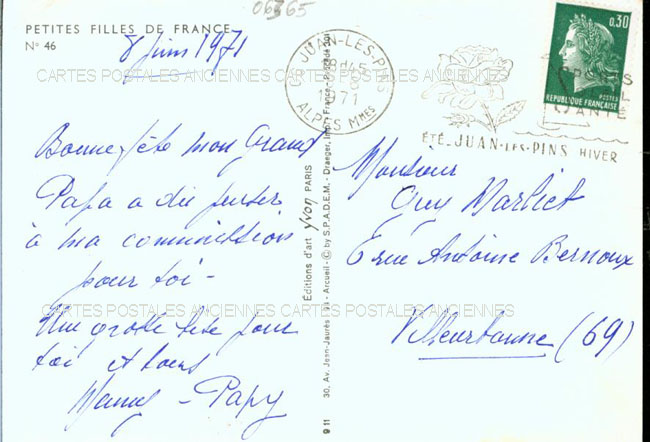 PETITES FILLES DE FRANCE
N° 46
06365
8 juin 1971
CARTES POSTALES ANCIENNES CARTES POSTALES ANCIENNES CARTES POSTALES ANCIENNES
Bonne fête mon Grand
Papa a dû penser
à ma commission
pour toi -
Une grosse bise pour
toi et tous
Mamy - Papy
CARTES POSTALES ANCIENNES CARTES POSTALES ANCIENNES CARTES POSTALES ANCIENNES
Éditions d'art yvon PARIS
30, Av. Jean-Jaurès - Arcueil - © by S.P.A.D.E.M. - Draeger, Imp. - France -
9 11
JUAN-LES-PINS
1971
ALPES Mmes
ÉTÉ JUAN-LES-PINS HIVER
0,30
POSTES
REPUBLIQUE FRANÇAISE
Monsieur
Guy
rue Antoine Bernoux
Villeurbanne (69)